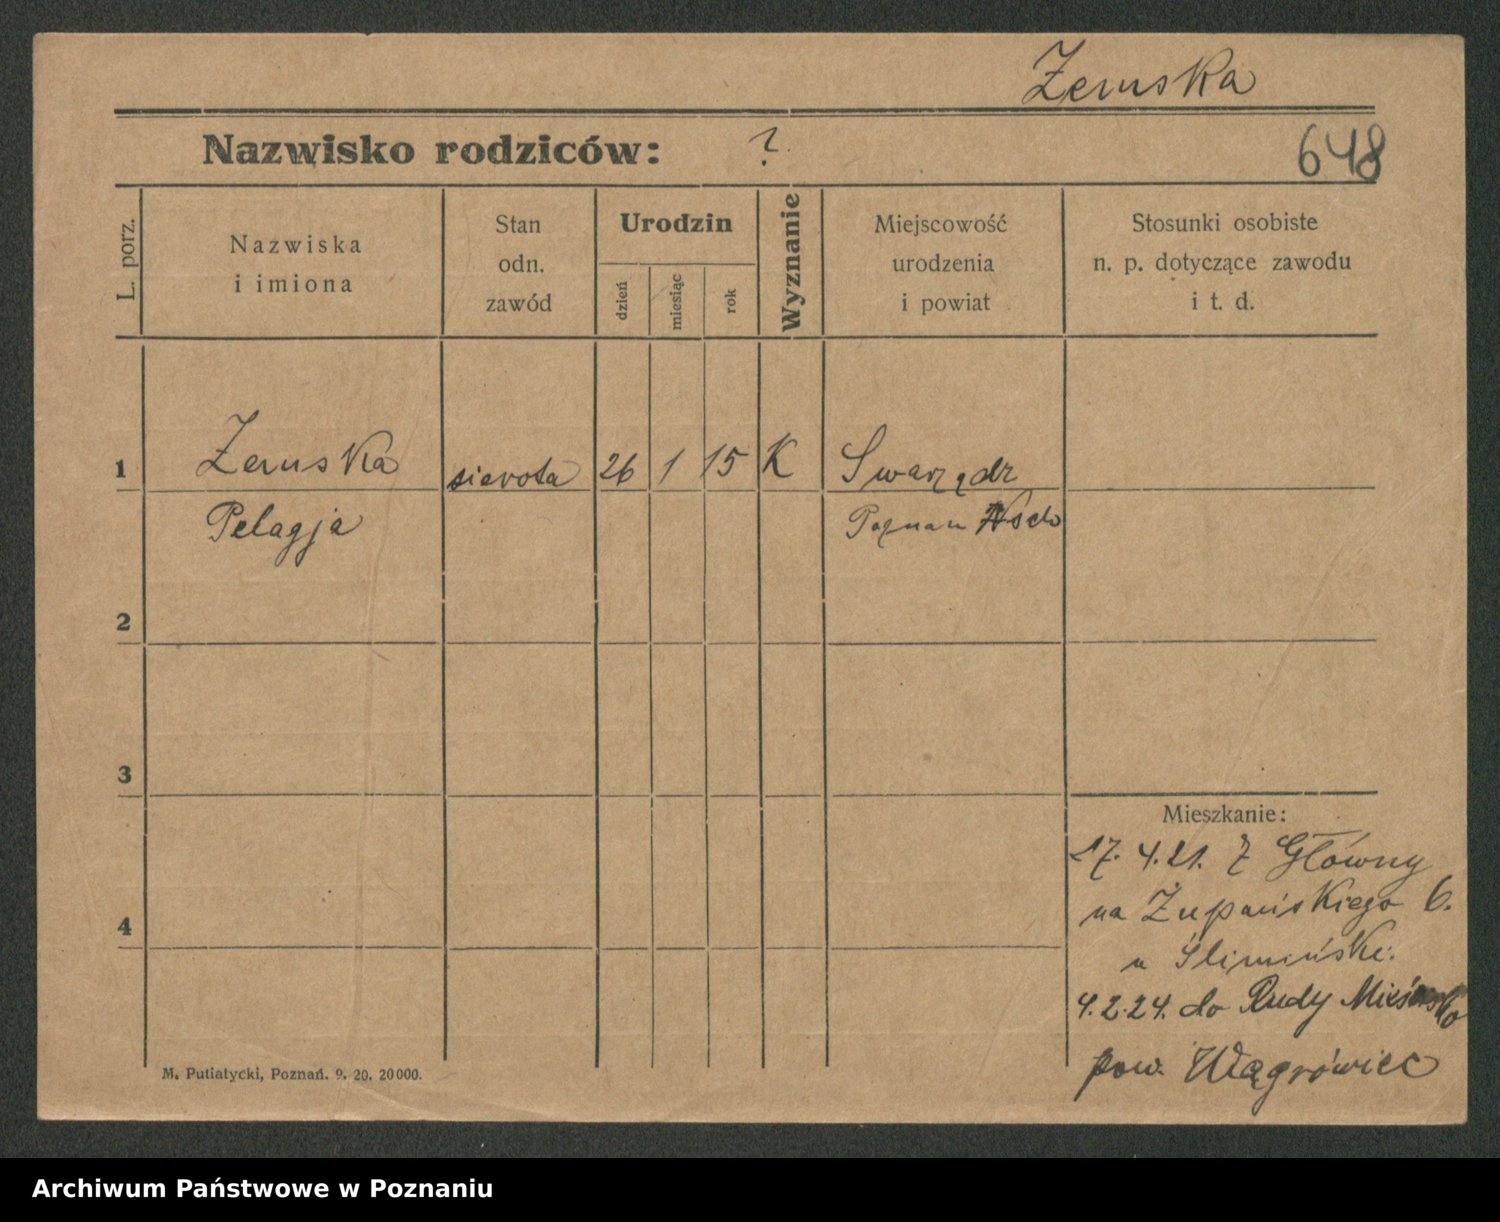 Zernska
Nazwisko rodziców: ?
648
L. porz.
Nazwiska
i imiona
Stan
odn.
zawód
Urodzin
dzień
miesiąc
rok
Wyznanie
Miejscowość
urodzenia
i powiat
Stosunki osobiste
n. p. dotyczące zawodu
i t. d.
1 Zernska sierota 26 1 15 K Swarzędz
Pelagja Poznan Wsch
2
3
4
Mieszkanie:
17. 4. 21. Z Główny
na Żupańskiego 6.
u
4. 2. 24. do Rudy
pow. Wągrówiec
M. Putiatycki, Poznań. 9. 20. 20000.
Archiwum Państwowe w Poznaniu